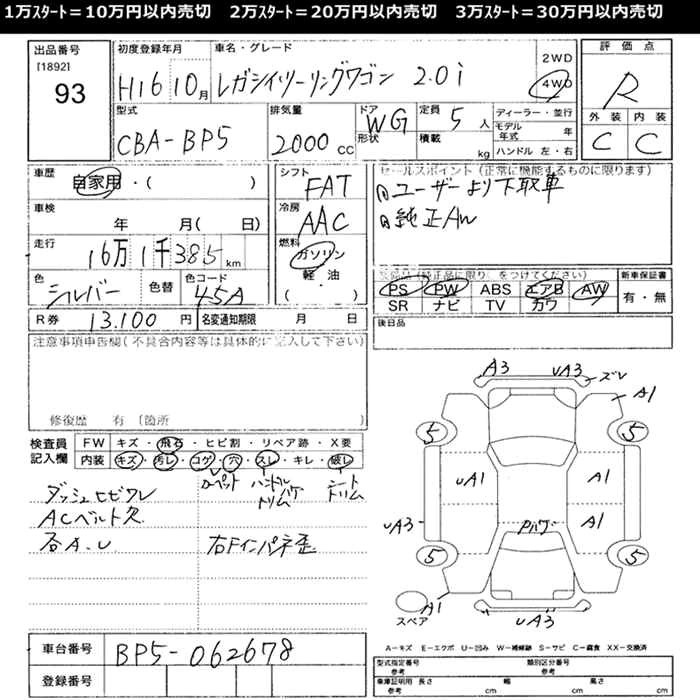 1万ｽﾀｰﾄ＝10万円以内売切　2万ｽﾀｰﾄ＝20万円以内売切　3万ｽﾀｰﾄ＝30万円以内売切
出品番号 初度登録年月 車名・グレード 評価点
[1892]
93
H16 10月 レガシイツーリングワゴン 2.0i
2WD
4WD
R
型式 排気量 ドア 定員 ディーラー・並行 外装 内装
CBA-BP5 2000CC WG 5人
形状 積載 kg
モデル年式 年
ハンドル 左・右
C C
車歴 シフト セールスポイント (正常に機能するものに限ります)
自家用・( ) FAT
①ユーザーより下取車
②純正AW
車検 冷房
年 月( 日) AAC
走行 燃料
16万1千385km ガソリン
軽・油
( )
色 色替 色コード
シルバー 45A
(純正品に限り、をつけてください) 新車保証書
PS PW ABS エアB AW 有・無
SR ナビ TV カワ
R券 13.100円 名変通知期限 月 日 後日品
注意事項申告欄(不具合内容等は具体的に記入して下さい)
修復歴 有 (箇所
検査員 FW キズ・飛石・ヒビ割・リペア跡・X要
記入欄 内装 キズ・汚レ・コゲ・穴・スレ・キレ・破レ
カーペット ハンドル トリム シート トリム
ダッシュヒビワレ
ACベルト欠
各A.U 右Fインパネ歪
A3 UA3 ズレ
A1
5 5
UA1 A1
UA3 A1
Pハゲ
5 5
スペア A1
UA3
A－キズ E－エクボ U－凹み W－補修跡 S－サビ C－腐食 XX－交換済
車台番号 BP5-062678
登録番号
型式指定番号 類別区分番号
参考 参考
車庫証明用 長さ 幅 高さ
参考 cm cm cm